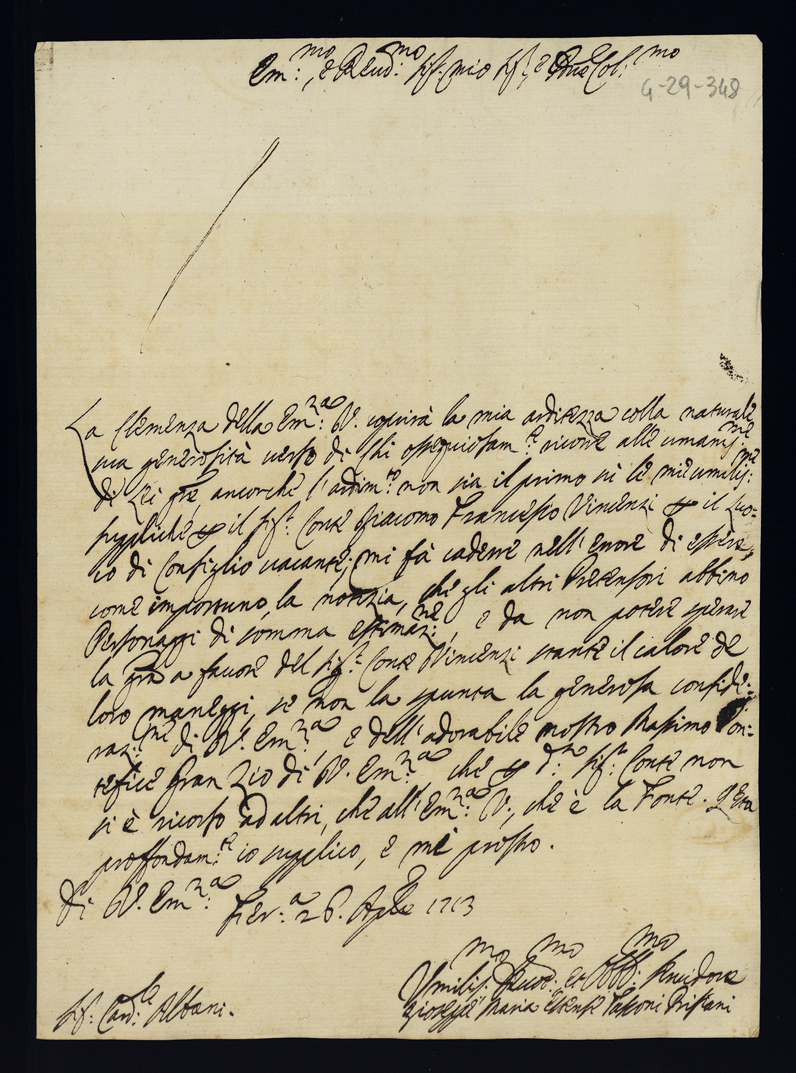 Em:mo, e Reud:mo Sig. mio Sig., e Pne Col:mo
4-29-348
La Clemenza della Em:nza V. coprirà la mia arditezza colla naturale
sua generosità verso di chi ossequiosam:te ricorre alle umaniss:me
di Lei gre, ancorche l'ardim:to non sia il primo si le mie umiliss:me
suppliche p il Sig.r Conte Giacomo Francesco Vincenzi p il Luo-
co di Consiglio vacante; mi fà cadere nell'errore di essere,
come importuno, la notizia, che gli altri Pretensori abbino
Personaggi di somma estimaz:ne, e da non potere sperare
la gra a favore del Sig.r Conte Vincenzi stante il calore de
loro maneggi, se non la spunta la generosa conside:
raz:ne di V. Em:nza e dell'adorabile nostro Massimo Pon:
tefice Gran Zio di V. Em:nza che p d.to Sig.r Conte non
si è ricorso ad altri, che all'Em:nza V., che è la Fonte.
proffondam:te io supplico, e mi prostro.
Di V. Em:nza
Fer:a 26. Aple 1713
Umilis:mo Deuot:mo et Obb:mo Seruidore
Gioseffe Maria Estense Tassoni Pristani
Sig: Card:le Albani.